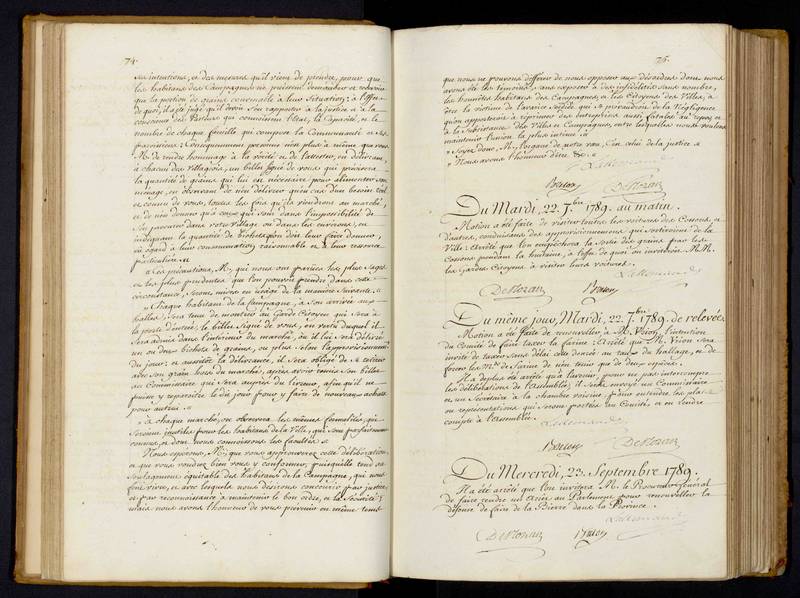 74.
ses intentions, et des mesures qu'il vient de prendre, pour que
les habitans des Campagnes ne puissent demander et recevoir
que la portion de grains convenable à leur Situation: à l'effet
de quoi, il a été jugé qu'il devoit s'en rapporter à la justice et à la
conscience des Pasteurs qui connoissent l'état, la Capacité, et le
nombre de chaque famille qui compose la Communauté et les
paroissiens: Conséquemment personne n'est plus à même que vous
M. de rendre hommage à la vérité et de l'attester, en délivrant,
à chacun des Villageois, un billet signé de vous qui précisera
la quantité de grains qui lui est nécessaire pour alimenter son
ménage, en observant de n'en délivrer qu'en cas d'un besoin réel
et connu de vous, toutes les fois qu'ils viendront au marché,
et de n'en donner qu'à ceux qui sont dans l'impossibilité de
s'en procurer dans votre Village ou dans les environs, en
indiquant la quantité de bichets qu'on doit leur faire donner,
eu égard à leur consommation raisonnable et à leur ressource
particulière. »
« Ces précautions, M., qui nous ont parues les plus Sages
et les plus prudentes que l'on pouvoit prendre dans cette
circonstance, seront mises en usage de la manière Suivante. »
« Chaque habitant de la Campagne, à son arrivée aux
halles, Sera tenu de montrer au Garde Citoyen qui Sera à
la porte d'entrée, le billet Signé de vous, en vertu duquel il
Sera admis dans l'intérieur du marché, où il lui Sera délivré
un ou deux bichets de grains, ou plus Selon l'approvisionnement
du jour: et aussitôt la délivrance, il Sera obligé de se retirer
avec son grain hors du marché, après avoir remis son billet
au Commissaire qui Sera auprès du livreur, afin qu'il ne
puisse y reparoître le dit jour pour y faire de nouveaux achats
pour autrui. »
« à chaque marché, on observera les mêmes formalités, qui
Seront inutiles pour les habitans de la Ville, qui sont parfaitement
connus, et dont nous connoissons les facultés. »
Nous espérons, M., que vous approuverez cette délibération
et que vous voudrez bien vous y conformer, puisqu'elle tend au
Soulagement équitable des habitans de la Campagne, qui nous
font vivre, et avec lesquels nous désirons concourir par justice
et par reconnoissance à maintenir le bon ordre, et la Sécurité;
mais nous avons l'honneur de vous prévenir en même tems
75.
que nous ne pouvons différer de nous opposer aux désordres dont nous
avons été les témoins, sans exposer à des infidélités sans nombre,
les honnêtes habitans des Campagnes, et les Citoyens des Villes, à
être la victime de l'avarice Sordide qui se prévaudroit de la Négligence
qu'on apporteroit à réprimer des entreprises aussi fatales au repos et
à la Subsistance des Villes et Campagnes, entre lesquelles nous voulons
maintenir l'union la plus intime. »
« Soyez donc, M., l'organe de notre vœu, c'en est celui de la justice. »
« Nous avons l'honneur d'être &c. »
Lallemand
Breton DeNozan
Du Mardi, 22. 7.bre 1789. au matin.
Motion a été faite de visiter toutes les voitures des Cossons, et
d'autres, conduisant des approvisionnemens qui sortiroient de la
Ville: Arrêté que l'on empêchera la Sortie des grains par les
Cossons pendant la huitaine, à l'effet de quoi on invitera MM.
les Gardes Citoyens à visiter leurs voitures.
Lallemand
DeNozan Breton
Du même jour, Mardi, 22. 7.bre 1789. de relevée.
Motion a été faite de renouveller à M. Vrion, l'intention
du Comité de faire taxer la farine: Arrêté que M. Vrion Sera
invité de taxer Sans délai cette denrée au taux du hallage, et de
forcer les Mds. de farine de n'en tenir que de deux espèces.
Il a de plus été arrêté qu'à l'avenir, pour ne pas interrompre
les délibérations de l'Assemblée, il Sera envoyé un Commissaire
et un Secrétaire à la chambre voisine, pour entendre les plaintes
ou représentations qui Seront portées au Comité, et en rendre
compte à l'Assemblée.
Lallemand
Breton DeNozan
Du Mercredi, 23. Septembre 1789.
Il a été arrêté que l'on invitera M. le Procureur-Général
de faire rendre un Arrêt au Parlement pour renouveller la
défense de faire de la Bierre dans la Province.
Lallemand
DeNozan Breton